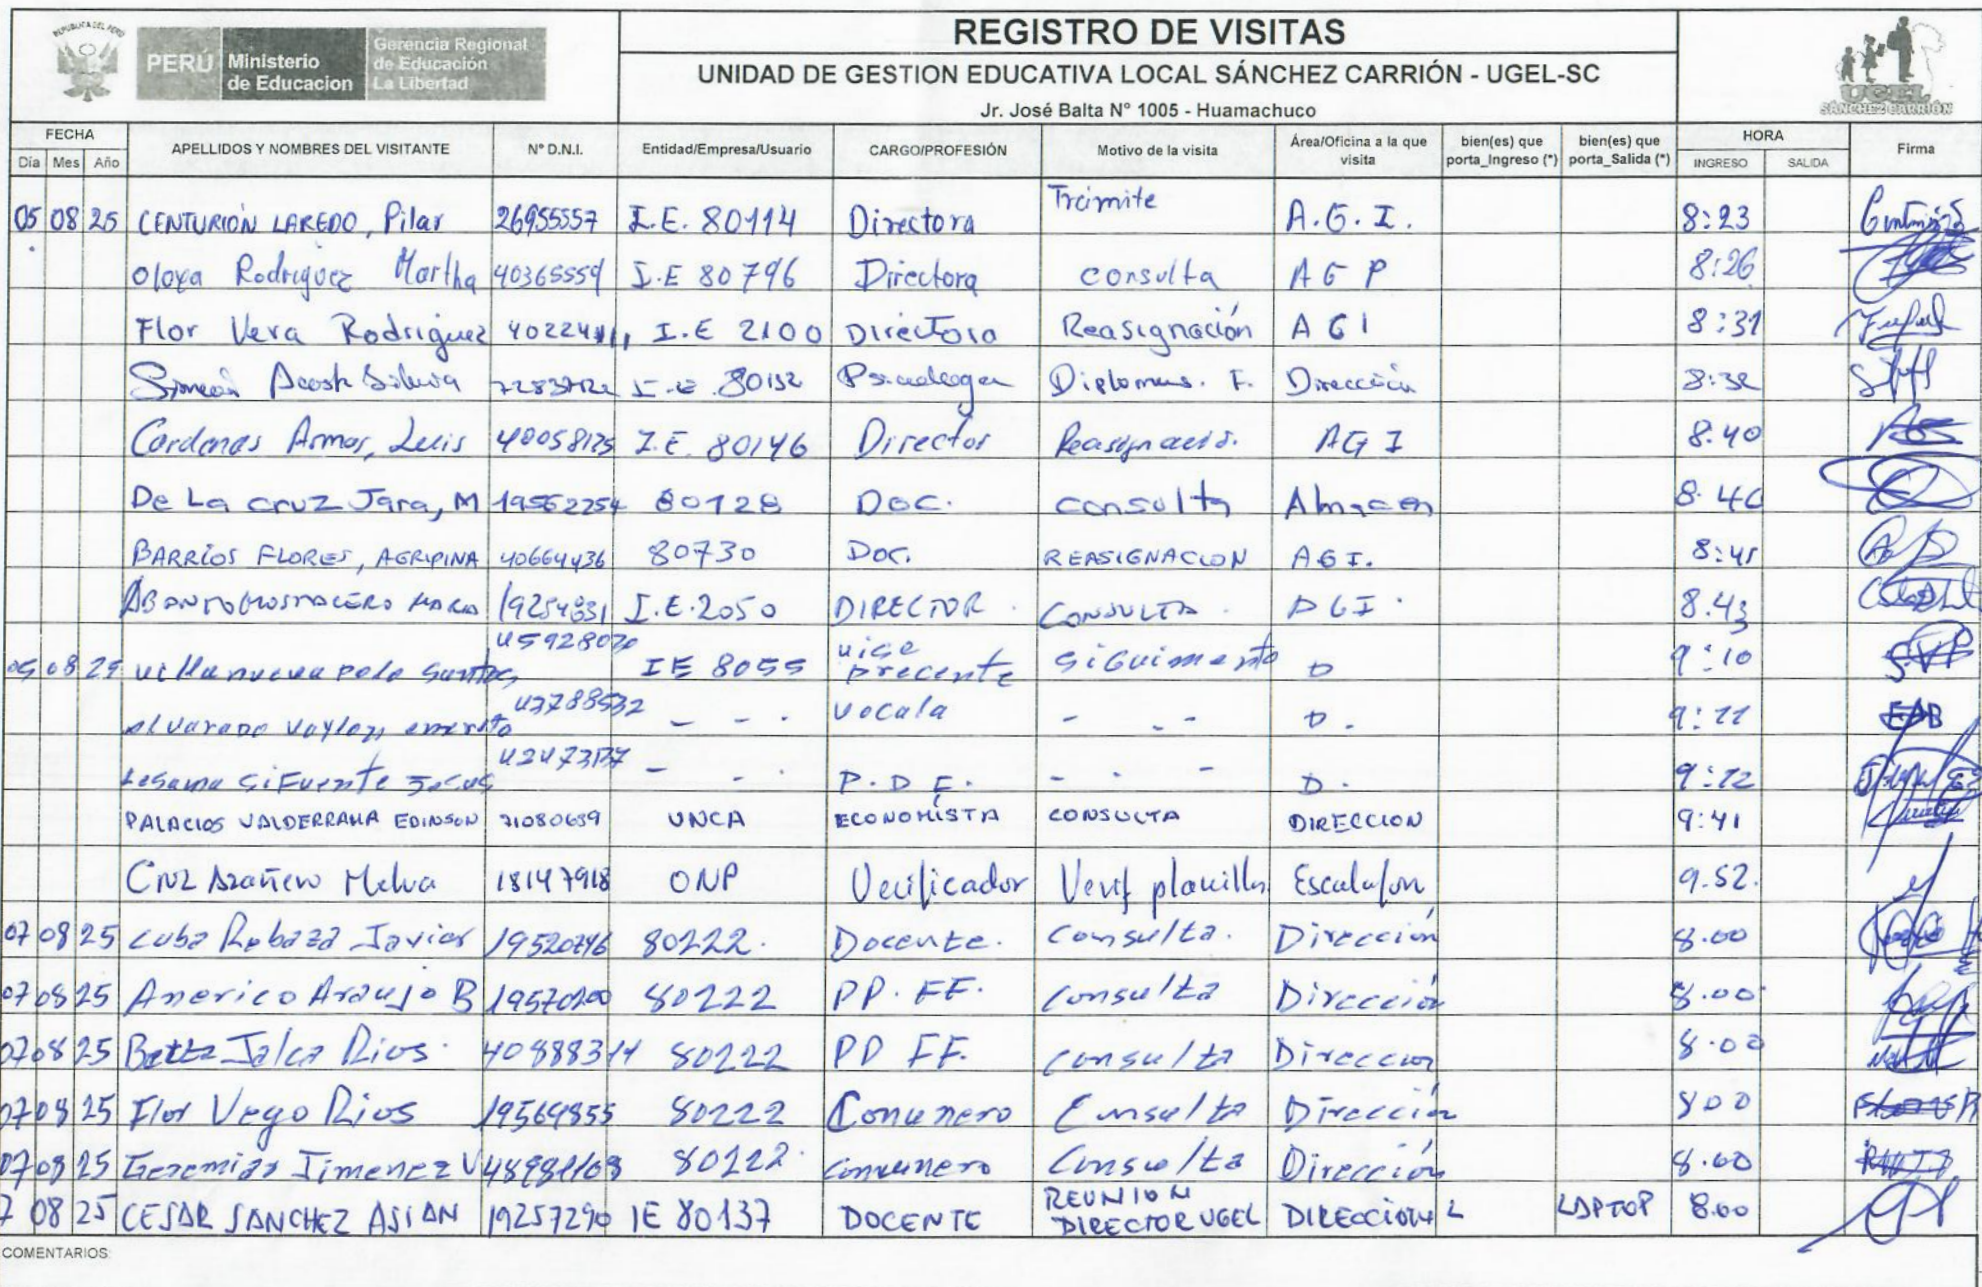 REPUBLICA DEL PERU
PERÚ Ministerio de Educacion Gerencia Regional de Educación La Libertad
REGISTRO DE VISITAS
UNIDAD DE GESTION EDUCATIVA LOCAL SÁNCHEZ CARRIÓN - UGEL-SC
Jr. José Balta N° 1005 - Huamachuco
UGEL
SÁNCHEZ CARRIÓN
FECHA APELLIDOS Y NOMBRES DEL VISITANTE N° D.N.I. Entidad/Empresa/Usuario CARGO/PROFESIÓN Motivo de la visita Área/Oficina a la que visita bien(es) que porta_Ingreso (*) bien(es) que porta_Salida (*) HORA Firma
Día Mes Año INGRESO SALIDA
05 08 25 CENTURIÓN LAREDO, Pilar 26955557 I.E. 80114 Directora Trámite A.G.I. 8:23
Oloya Rodriguez Martha 40365559 I.E 80796 Directora consulta AGP 8:26
Flor Vera Rodriguez I.E 2100 Directora Reasignación AGI 8:31
Acosta Silvia I.E. 80132 Psicologa F. Dirección 8:32
Cardenas Armas, Luis 40058125 I.E. 80146 Director AGI 8.40
De La Cruz Jara, M 19562254 80128 Doc. consulta Almacen
BARRIOS FLORES, AGRIPINA 40664436 80730 Doc. REASIGNACION AGI. 8:41
I.E. 2050 DIRECTOR. CONSULTA. AGI. 8.43
05 08 25 villanueva polo santos 45928070 IE 8055 vise precente siguimento D 9:10
- - . vocala - . - D. 9:11
Lesama Sifuente - . . P.D.F. - . - D. 9:12
PALACIOS VALDERRAMA EDINSON 71080659 UNCA ECONOMISTA CONSULTA DIRECCION 9:41
Cruz Azañero Melva 18147918 ONP Verificador Verif planillas Escalafon 9.52.
07 08 25 Cuba Rebaza Javier 80222. Docente. Consulta. Dirección 8.00
07 08 25 Americo Araujo B 80222 PP.FF. Consulta Dirección 8.00
07 08 25 Jalca Rios. 80222 PP FF. consulta Direccion 8.00
07 08 25 Flor Vego Rios 19569855 80222 Comunero Consulta Dirección 800
07 08 25 Geremias Jimenez V 80222. Comunero Consulta Dirección 8.00
7 08 25 CESAR SANCHEZ ASIAN 19257290 IE 80137 DOCENTE REUNION DIRECTOR UGEL DIRECCION L LAPTOP 8.00
COMENTARIOS: